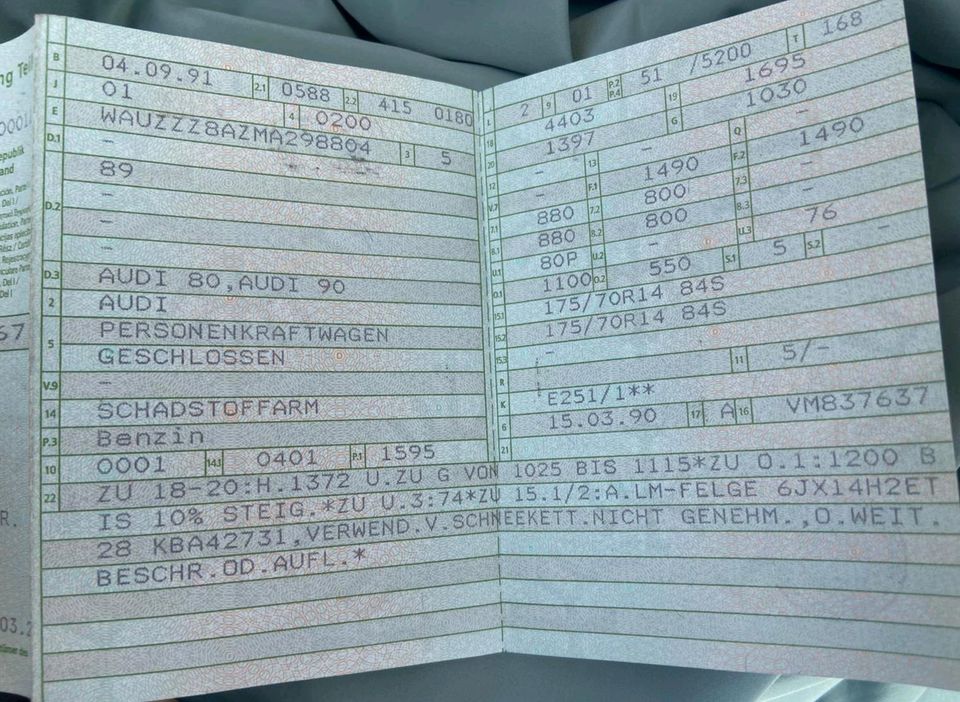 ng Teil
B 04.09.91 2.1 0588 2.2 415 0180
J 01 4 0200
E WAUZZZ8AZMA298804 3 5
D.1 -
D.2 89
-
-
-
D.3 AUDI 80,AUDI 90
2 AUDI
5 PERSONENKRAFTWAGEN
GESCHLOSSEN
V.9 -
14 SCHADSTOFFARM
P.3 Benzin
10 0001 14.1 0401 P.1 1595
L 2 9 01 P.2 P.4 51 /5200 T 168
18 4403 19 1695
20 1397 G 1030
12 - 13 - Q -
V.7 - F.1 1490 F.2 1490
7.1 880 7.2 800 7.3 -
8.1 880 8.2 800 8.3 -
U.1 80P U.2 - U.3 76
O.1 1100 O.2 550 S.1 5 S.2 -
15.1 175/70R14 84S
15.2 175/70R14 84S
15.3 -
R 11 5/-
K E251/1**
6 15.03.90 17 A 16 VM837637
21
22 ZU 18-20:H.1372 U.ZU G VON 1025 BIS 1115*ZU O.1:1200 B
IS 10% STEIG.*ZU U.3:74*ZU 15.1/2:A.LM-FELGE 6JX14H2ET
28 KBA42731,VERWEND.V.SCHNEEKETT.NICHT GENEHM.,O.WEIT.
BESCHR.OD.AUFL.*